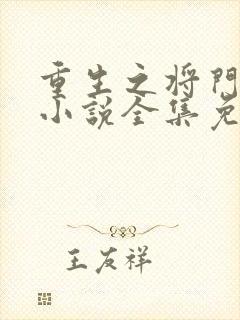 重生之将门
小说全集免
王友祥